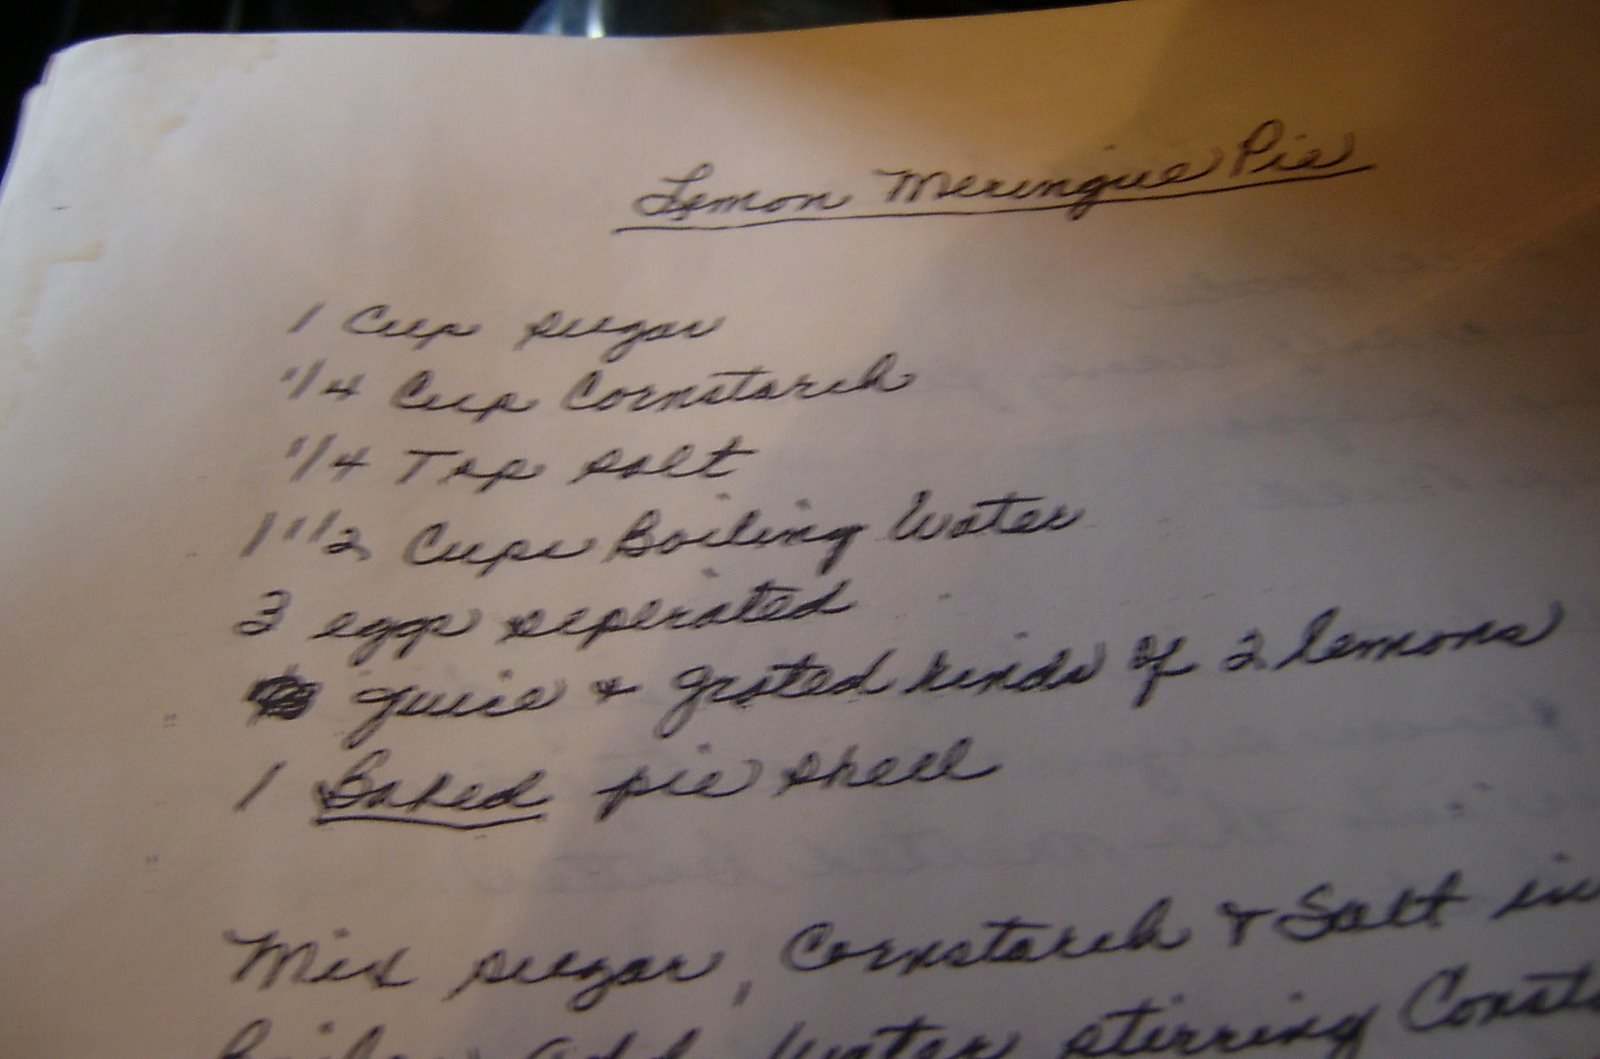 Lemon Meringue Pie
1 Cup sugar
1/4 Cup Cornstarch
1/4 Tsp salt
1 1/2 Cups Boiling Water
3 eggs seperated
juice & grated rinds of 2 lemons
1 Baked pie shell
Mix sugar, Cornstarch & Salt in
Add Water stirring